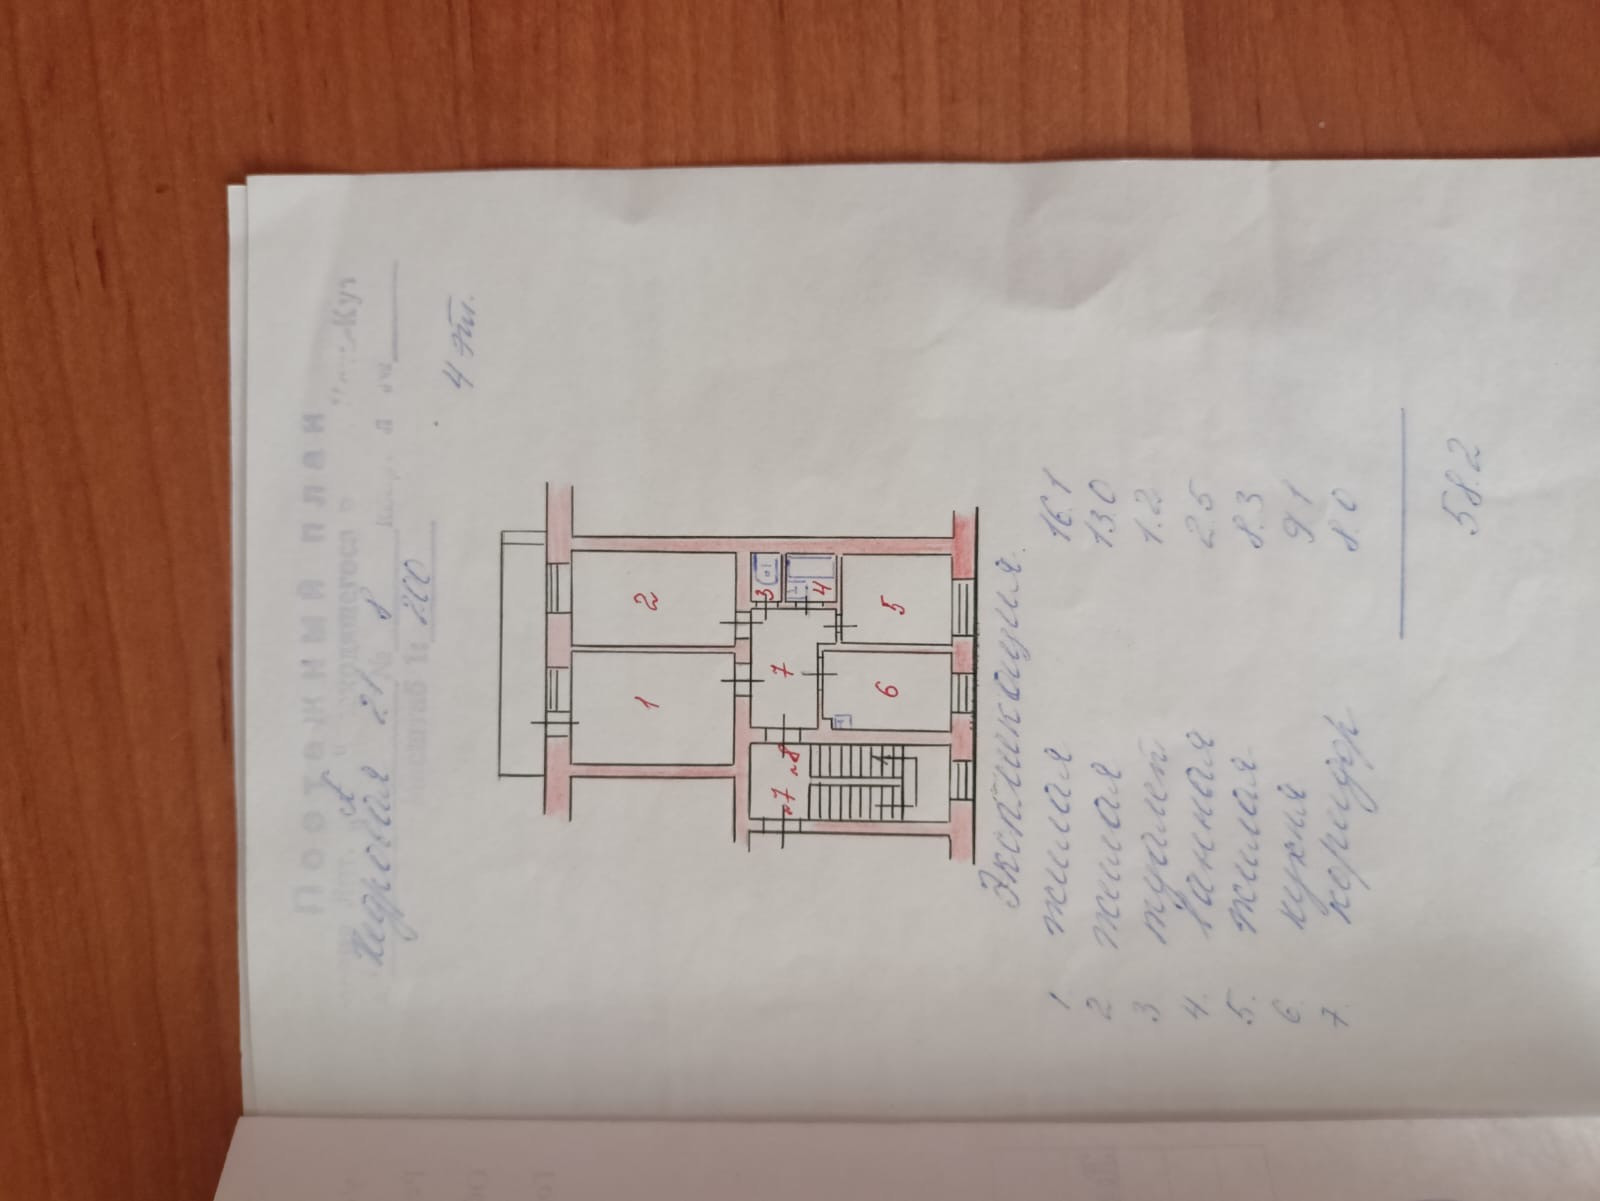 ПОЭТАЖНЫЙ ПЛАН
Кедровая 21 № 8
масштаб 1: 200
4 эт.
1
2
3
4
5
6
7
7
8
Экспликация.
1 жилая 16.1
2 жилая 13.0
3 туалет 1.2
4. ванная 2.5
5. жилая 8.3
6. кухня 9.1
7. коридор 8.0
58.2